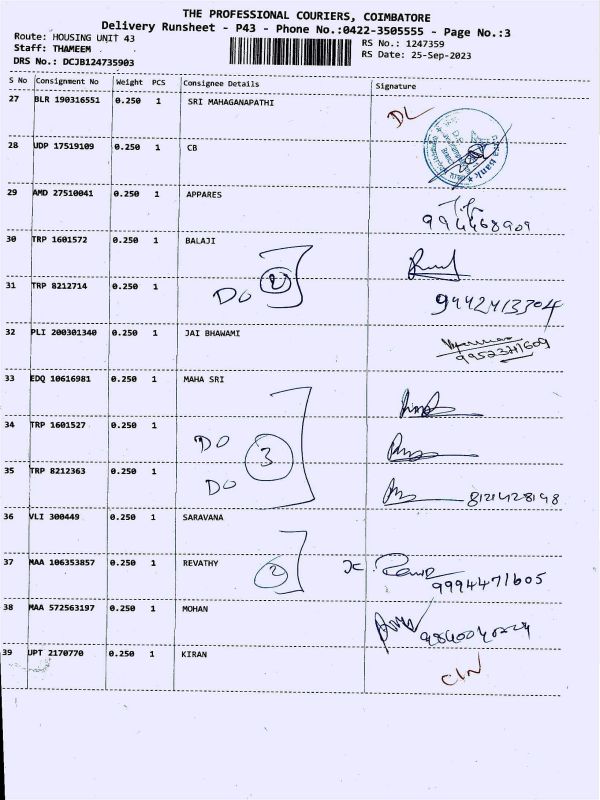 THE PROFESSIONAL COURIERS, COIMBATORE
Delivery Runsheet - P43 - Phone No.:0422-3505555 - Page No.:3
Route: HOUSING UNIT 43
Staff: THAMEEM
DRS No.: DCJB124735903
RS No.: 1247359
RS Date: 25-Sep-2023
S No Consignment No Weight PCS Consignee Details Signature
27 BLR 190316551 0.250 1 SRI MAHAGANAPATHI DL
28 UDP 17519109 0.250 1 CB
29 AMD 27510041 0.250 1 APPARES
994468909
30 TRP 1601572 0.250 1 BALAJI
31 TRP 8212714 0.250 1 DO 2 9442413304
32 PLI 200301340 0.250 1 JAI BHAWAMI
33 EDQ 10616981 0.250 1 MAHA SRI
34 TRP 1601527 0.250 1 DO 3
35 TRP 8212363 0.250 1 DO 8121428148
36 VLI 300449 0.250 1 SARAVANA
37 MAA 106353857 0.250 1 REVATHY 2
9994471605
38 MAA 572563197 0.250 1 MOHAN
39 UPT 2170770 0.250 1 KIRAN CIN